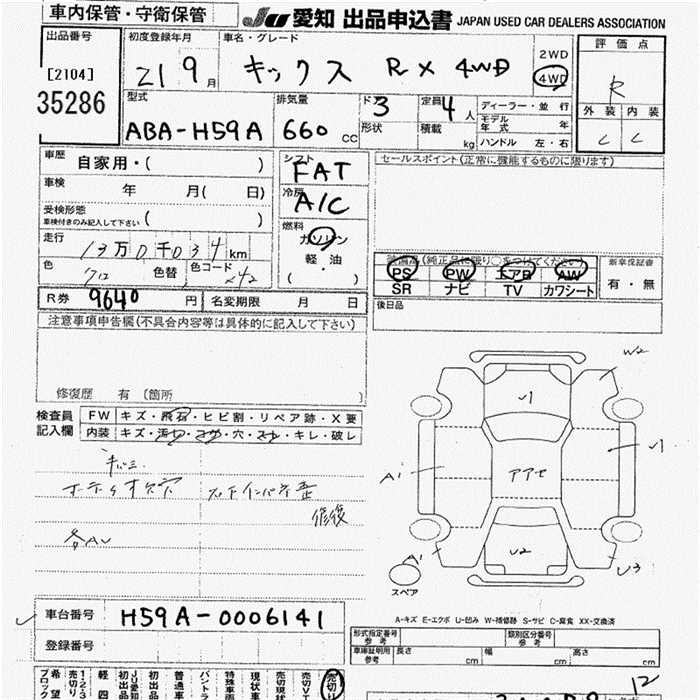 車内保管・守衛保管
JU 愛知 出品申込書 JAPAN USED CAR DEALERS ASSOCIATION
出品番号
[2104]
35286
初度登録年月
21 9月
車名・グレード
キックス RX 4WD
2WD
4WD
評価点
R
外装 内装
C C
型式
ABA-H59A
排気量
660 CC
ドア
3
形状
定員
4人
積載
kg
ディーラー・並行
モデル年式 年
ハンドル 左・右
車歴
自家用・( )
車検 年 月( 日)
受検形態
車検付きのみ記入して下さい ( )
走行
13万0千034km
色
色替
色コード
X42
シフト
FAT
冷房
A/C
燃料
ガソリン
軽・油
( )
セールスポイント(正常に機能するものに限ります)
(純正品に限り○をつけてください)
PS PW エアB AW
SR ナビ TV カワシート
新車保証書
有・無
後日品
R券 9640円
名変期限 月 日
注意事項申告欄(不具合内容等は具体的に記入して下さい)
修復歴 有 (箇所 )
検査員記入欄
FW キズ・飛石・ヒビ割・リペア跡・X要
内装 キズ・汚れ・コゲ・穴・スレ・キレ・破レ
各AU
修復
W2
U2
U3
A1
A1
スペア
A-キズ E-エクボ U-凹み W-補修跡 S-サビ C-腐食 XX-交換済
車台番号 H59A-0006141
登録番号
形式指定番号 参考
類別区分番号 参考
車庫証明用 参考
長さ cm
幅 cm
高さ cm
12
売切り